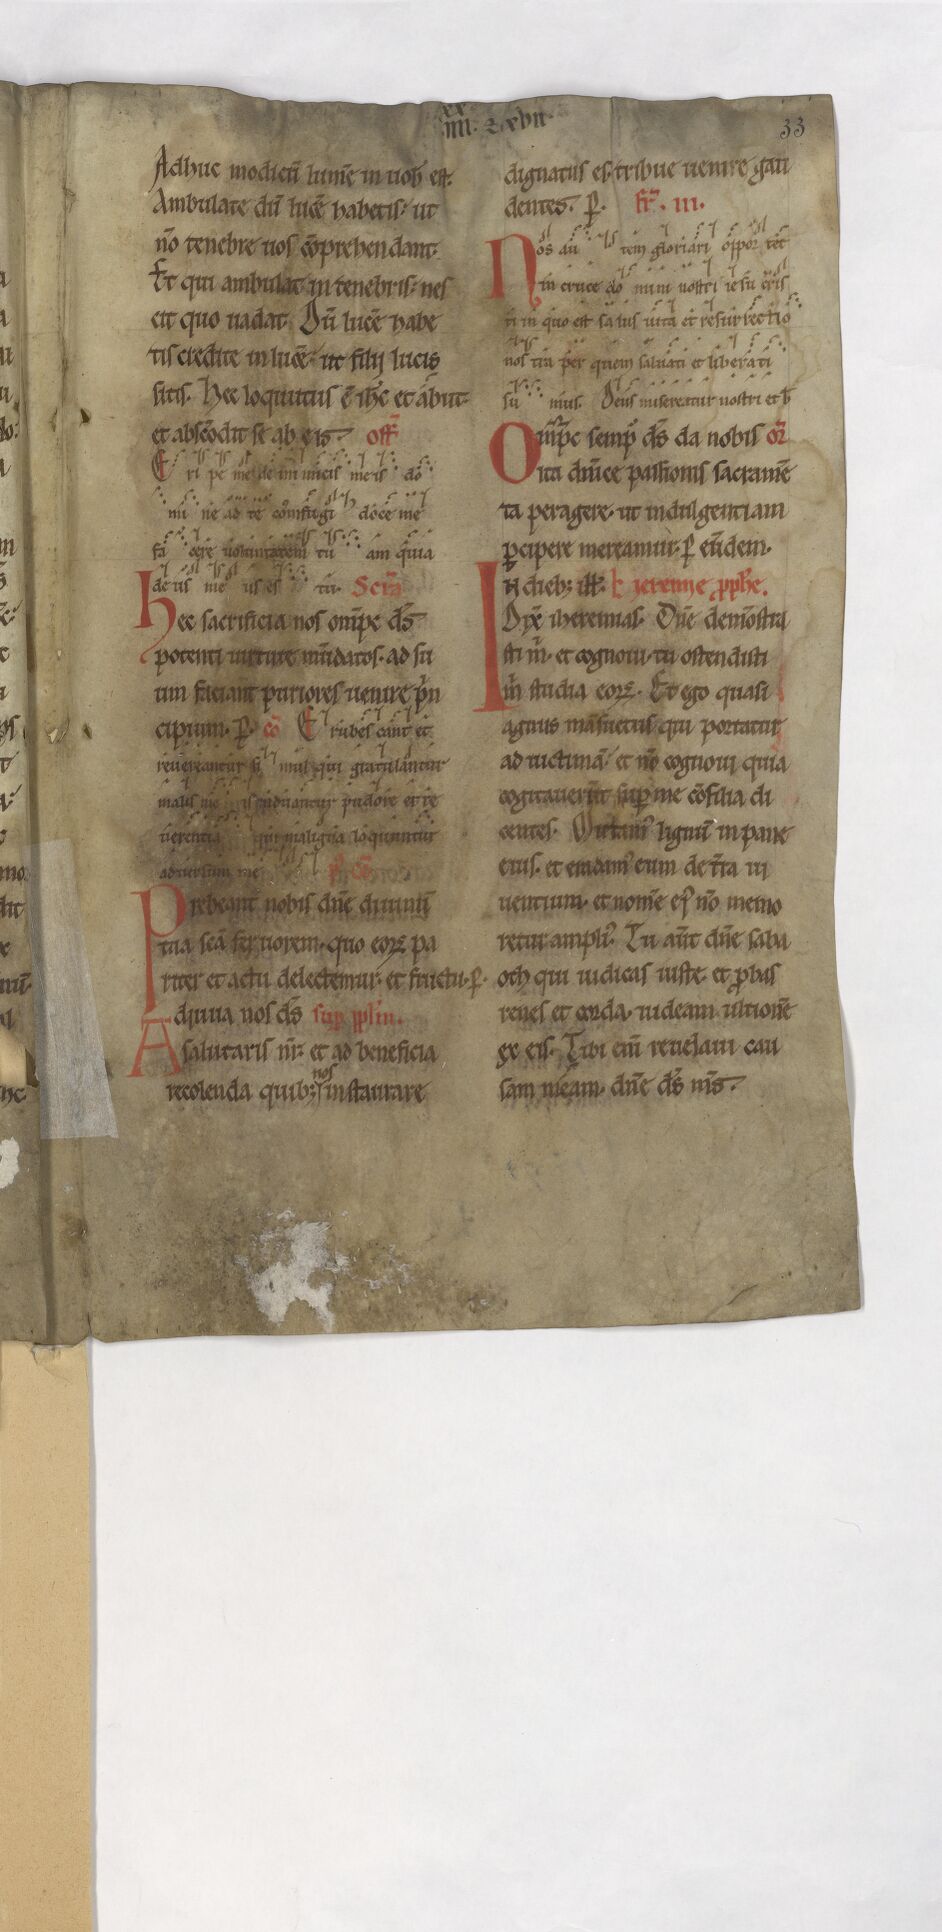 xx
iiii. ⁊ xvii.
33
Adhuc modicū lum̄e in uob̄ est.
Ambulate dū lucē habetis. ut
nō tenebre uos cōprehendant.
Et qui ambulat in tenebris. nes
cit quo uadat. Dū lucē habe
tis credite in lucē. ut filij lucis
sitis. Hec loquutus ē ih̄c et abiit.
et abscōdit se ab eis. off̄
Eri pe me de ini micis meis do
mi ne ad te confugi doce me
fa cere uoluntatem tu am quia
de us me us es tu. Secr̄a
Hec sacrificia nos om̄pc ds̄
potenti uirtute mūdatos. ad su
um faciant puriores uenire p̄n
cipium. ꝑ. cō Erubes cant et
reuereantur si mul qui gratulantur
malis me is induantur pudore et re
uerentia qui maligna loquuntur
aduersum me p̄ cō
Prebeant nobis dn̄e diuinū
tua scā feruorem. quo eoꝝ pa
riter et actu delectemur. et fructu. ꝑ.
Adiuua nos ds̄ sup̄ pplm̄.
salutaris nr̄. et ad beneficia
recolenda quibꝫ nos instaurare
dignatus es. tribue uenire gau
dentes. ꝑ. fr̄. iii.
Nos au tem gloriari opor tet
in cruce do mini nostri iesu cris
ti in quo est sa lus uita et resurrectio
nos tra per quem saluati et liberati
su mus. Deus misereatur nostri et b̄
Om̄pc semp̄ ds̄ da nobis or̄
ita dn̄ice passionis sacramē
ta peragere. ut indulgentiam
ꝑcipere mereamur. ꝑ eūdem.
In diebꝫ ill̄. ł Jeremie pphe.
Dix̄ iheremias. Dn̄e demōstra
sti m̄. et cognoui. tu ostendisti
m̄ studia eoꝝ. Et ego quasi
agnus māsuetus qui portatur
ad uictimā. et nō cognoui quia
cogitauerūt sup̄ me cōsilia di
centes. Mittam᷒ lignū in pane
eius. et eradam᷒ eum de tr̄a ui
uentium. et nom̄e ei᷒ nō memo
retur ampli᷒. Tu aūt dn̄e saba
oth qui iudicas iuste. et ꝓbas
renes et corda. uideam ultionē
ex eis. Tibi em̄ reuelaui cau
sam meam. dn̄e ds̄ ms̄.